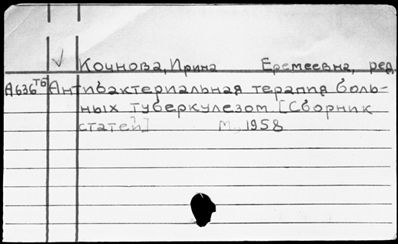 Кочнова, Ирина Еремеевна, ред.
А636тб Антибактериальная терапия боль-
ных туберкулезом [Сборник
статей] М., 1958